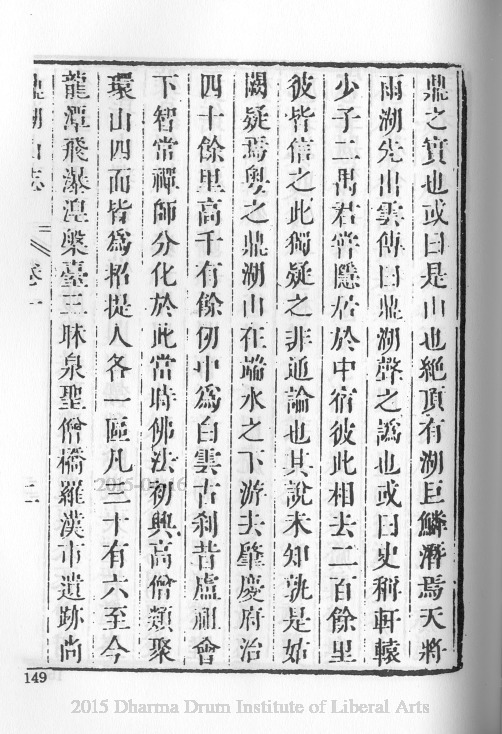 鼎之實也或曰是山也絶頂有湖巨鱗潛焉天將
雨湖先出雲傳曰鼎湖聲之譌也或曰史稱軒轅
少子二禺君嘗隱居於中宿彼此相去二百餘里
彼皆信之此獨疑之非通論也其說未知孰是姑
闕疑焉粵之鼎湖山在端水之下游去肇慶府治
四十餘里高千有餘仞中為白雲古刹昔盧祖會
下智常禪師分化於此當時佛法初興高僧類聚
環山四面皆為招提人各一區凡三十有六至今
龍潭飛瀑湼槃臺三昧泉聖僧橋羅漢市遺跡尚
鼎湖山志 卷一 二
149
2015 Dharma Drum Institute of Liberal Arts